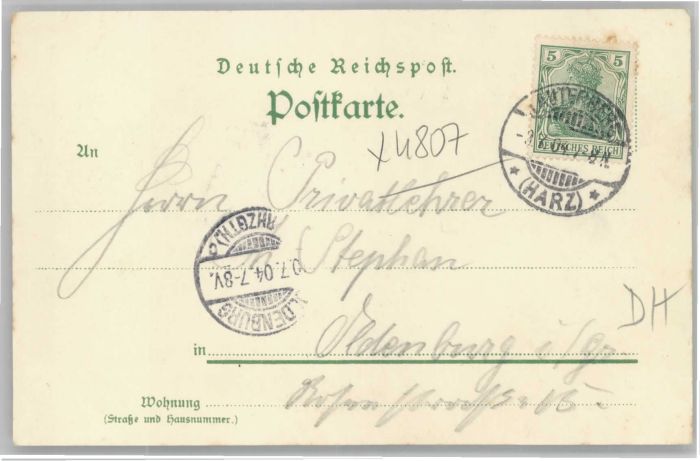 Deutsche Reichspost.
Postkarte.
5 5
DEUTSCHES REICH
LAUTERBERG
(HARZ)
x4807
An
Herrn Privatlehrer
Stephan
OLDENBURG
7.04.7-8V.
DH
in Oldenburg i/Gr.
Wohnung
(Straße und Hausnummer.)